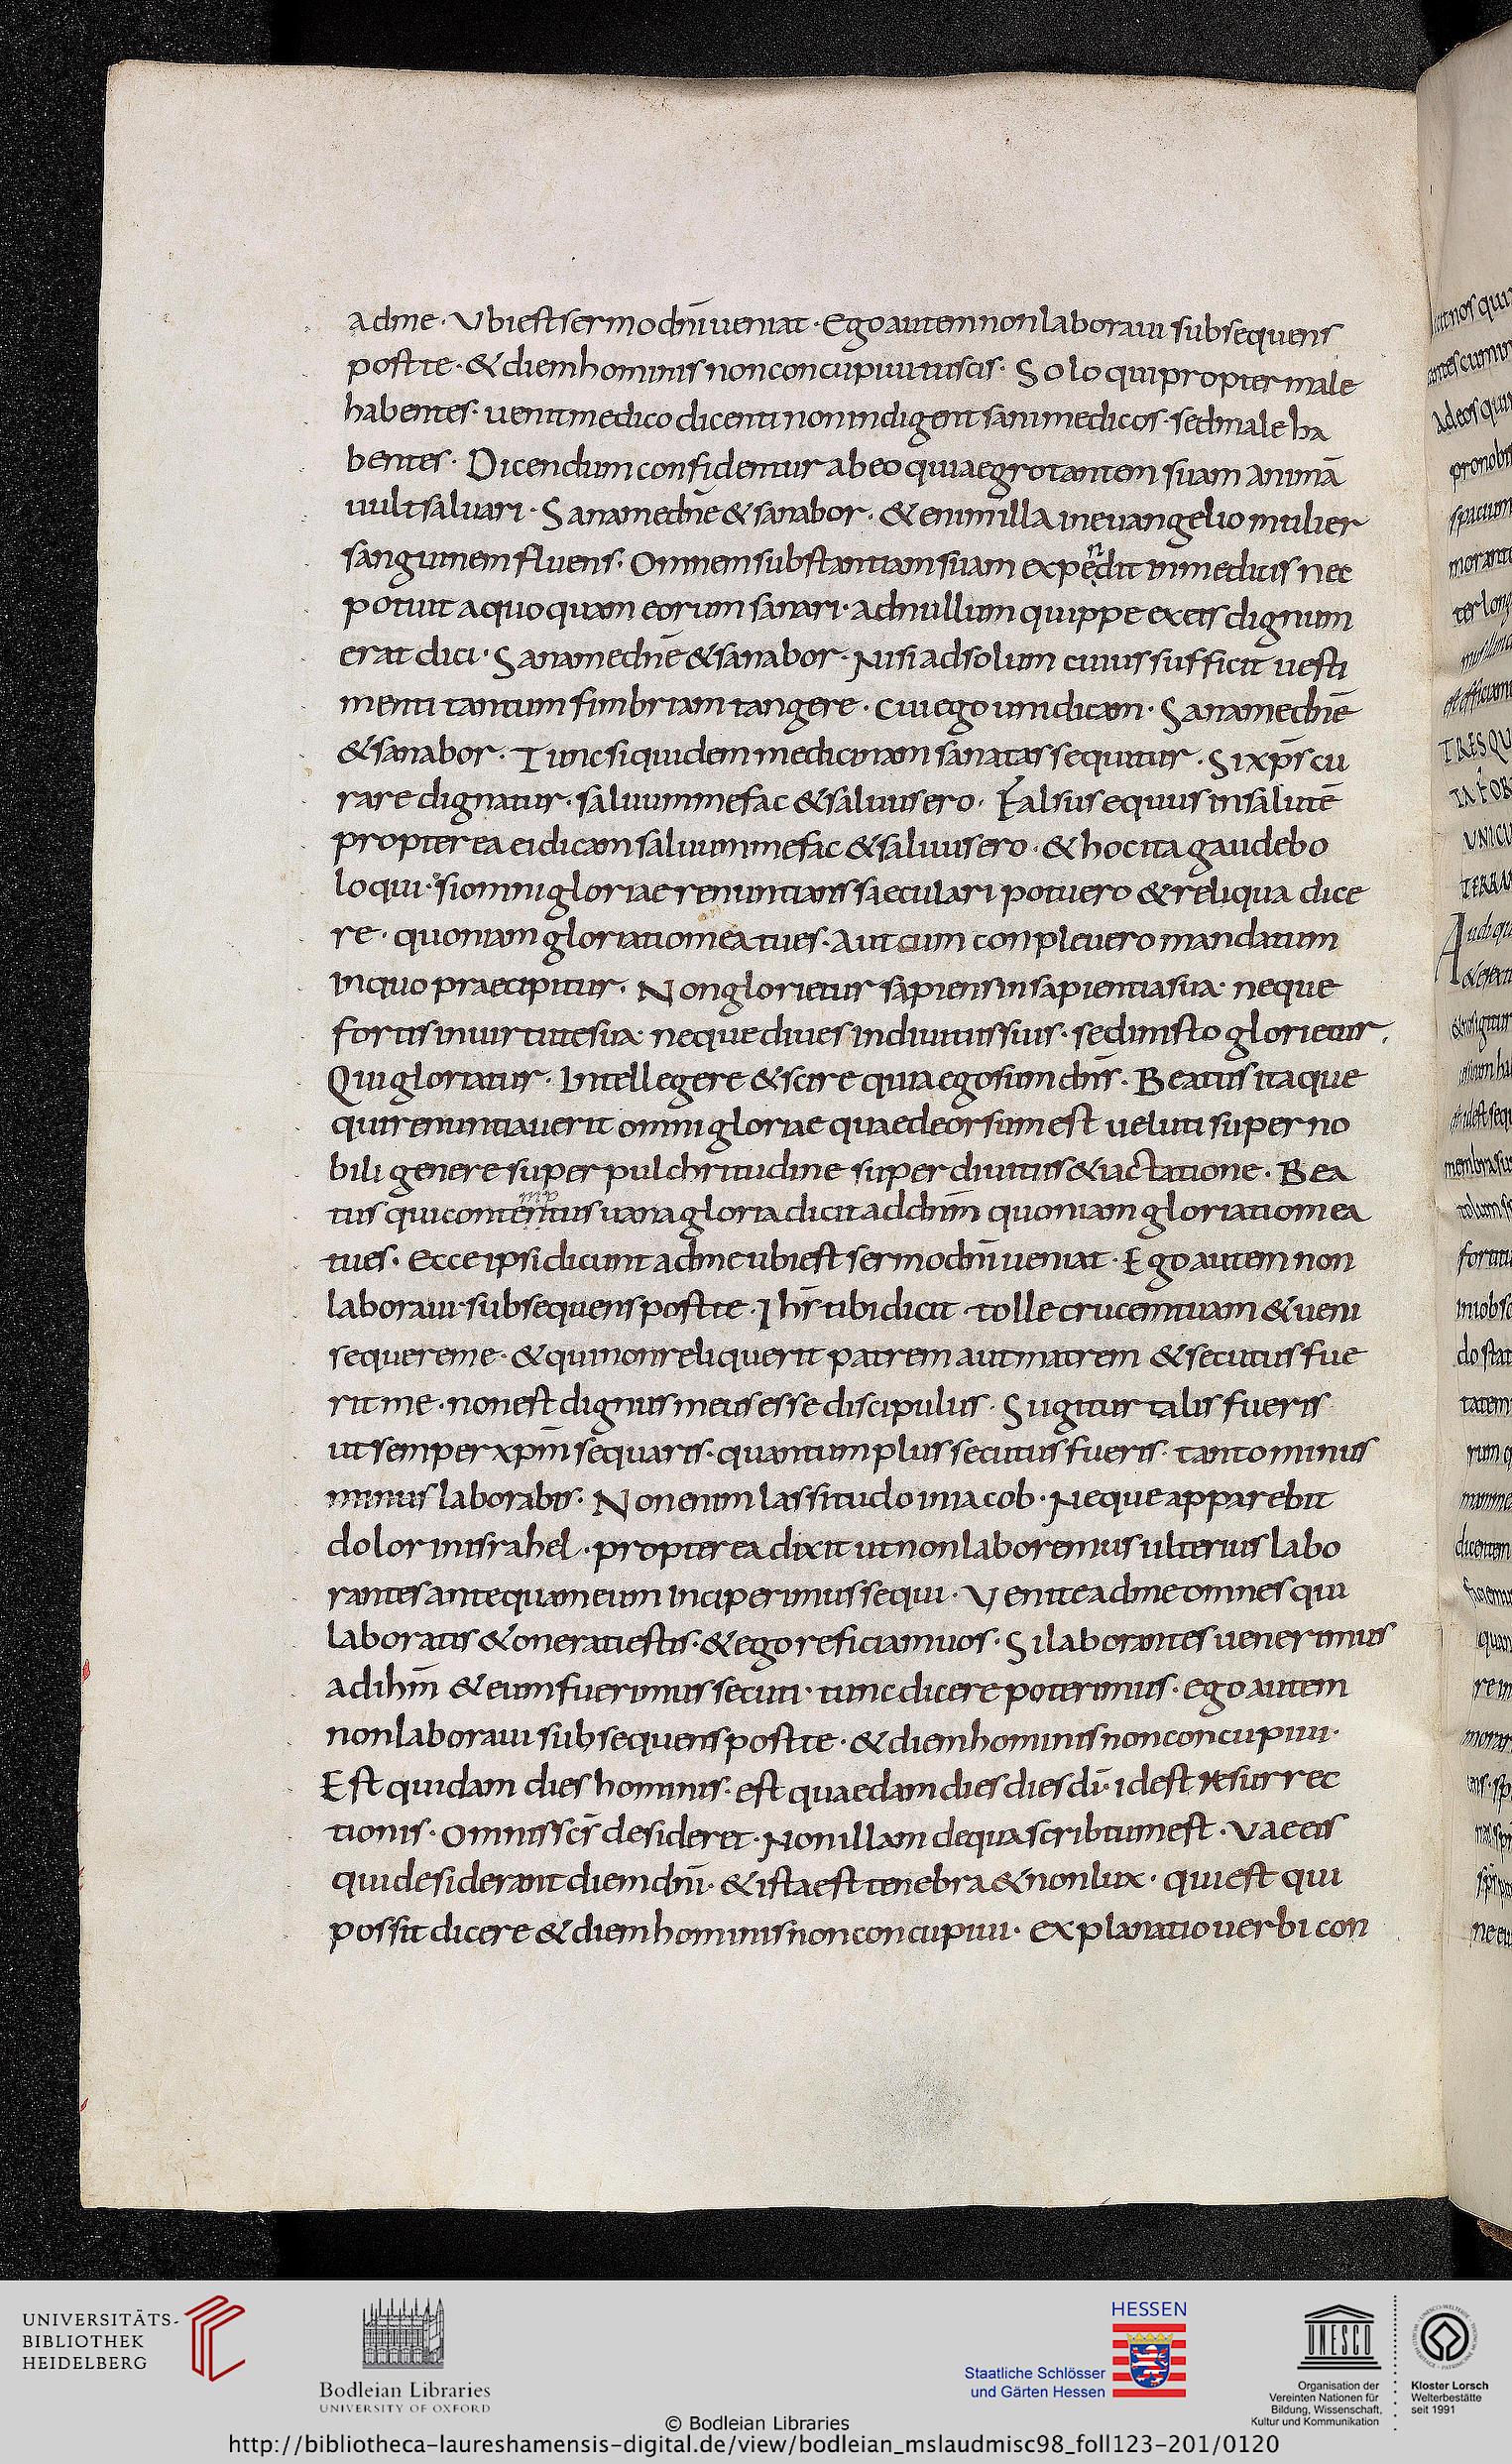 adme· Ubiest sermo dnī ueniat· Ego autem non laboraui subsequens
post te· & diem hominis non concupiui tu scis· Solo qui propter male
habentes· uenit medico dicenti non indigent sani medicos· sed male ha
bentes· Dicendum confidentur ab eo qui aegrotantem suam animā
uult saluari· Sana me dn̄e & sanabor· & enim illa in euangelio mulier
sanguinem fluens· Omnem substantiam suam expendit in medicis nec
potuit a quoquam eorum sanari· ad nullum quippe ex eis dignum
erat dici· Sana me dn̄e & sanabor· Nisi ad solum cuius sufficit uesti
menti tantum fimbriam tangere· Cui ego uni dicam· Sana me dn̄e
& sanabor· Tunc siquidem medicinam sanatas sequitur· Si xp̄s cu
rare dignatur· saluum me fac & saluus ero· Falsus equus in salutē
propterea ei dicam saluum me fac & saluus ero· & hoc ita gaudebo
loqui· si omni gloriae renuntians saeculari potuero & reliqua dice
re· quoniam gloriatio mea tu es· Aut cum conpleuero mandatum
in quo praecipitur· Non glorietur sapiens in sapientia sua· neque
fortis in uirtute sua· neque diues in diuitiis suis· sed in isto glorietur·
Qui gloriatur· Intellegere & scire quia ego sum dn̄s· Beatus itaque
qui renuntiauerit omni gloriae quae deorsum est ueluti super no
bili genere super pulchritudine super diuitiis & iactatione· Bea
tus qui contemptus uana gloria dicit ad dn̄m quoniam gloriatio mea
tu es· Ecce ipsi dicunt ad me ubi est sermo dnī ueniat· Ego autem non
laboraui· subsequens post te· Ihs̄ tibi dicit· tolle crucem tuam & ueni
sequere me· & qui non reliquerit patrem aut matrem & secutus fue
rit me· non est dignus meus esse discipulus· Si igitur talis fueris
ut semper xpm̄ sequaris· quantum plus secutus fueris· tanto minus
minus laborabis· Non enim lassitudo in iacob· Neque apparebit
dolor in israhel· propterea dixit ut non laboremus ulterius labo
rantes antequam eum inciperimus sequi· Venite ad me omnes qui
laboratis & onerati estis· & ego reficiam uos· Si laborantes uenerimus
ad ihm̄ & eum fuerimus secuti· tunc dicere poterimus· ego autem
non laboraui subsequens post te· & diem hominis non concupiui·
Est quidam dies hominis· est quaedam dies dies dī· id est resurrec
tionis· Omnis scs̄ desideret· Non illam de qua scribtum est· Vae eis
qui desiderant diem dnī· & ista est tenebra & non lux· qui est qui
possit dicere & diem hominis non concupiui· explanatio uerbi con
UNIVERSITÄTS-
BIBLIOTHEK
HEIDELBERG
Bodleian Libraries
UNIVERSITY OF OXFORD
HESSEN
Staatliche Schlösser
und Gärten Hessen
UNESCO
Organisation der
Vereinten Nationen für
Bildung, Wissenschaft,
Kultur und Kommunikation
Kloster Lorsch
Welterbestätte
seit 1991
© Bodleian Libraries
http://bibliotheca-laureshamensis-digital.de/view/bodleian_mslaudmisc98_foll123-201/0120